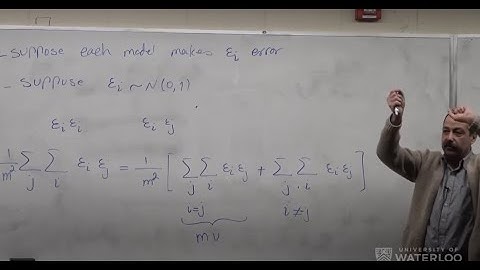 - suppose each model makes εi error
- suppose εi ~ N(0,1)
εiεi εiεj
1/m² ΣjΣi εiεj = 1/m² [ΣjΣi εiεj + ΣjΣi εiεj]
i=j i≠j
mv
UNIVERSITY OF
WATERLOO